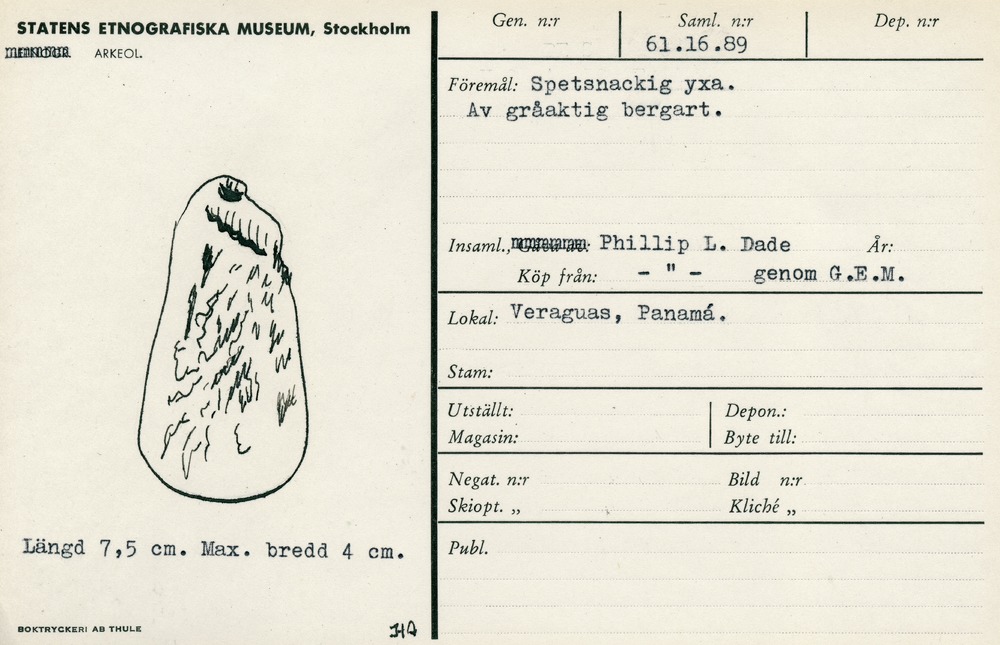 STATENS ETNOGRAFISKA MUSEUM, Stockholm
ARKEOL.
Gen. n:r
Saml. n:r
61.16.89
Dep. n:r
Föremål: Spetsnackig yxa.
Av gråaktig bergart.
Insaml., Phillip L. Dade År:
Köp från: - " - genom G.E.M.
Lokal: Veraguas, Panamá.
Stam:
Utställt: Depon.:
Magasin: Byte till:
Negat. n:r Bild n:r
Skiopt. „ Kliché „
Publ.
Längd 7,5 cm. Max. bredd 4 cm.
BOKTRYCKERI AB THULE